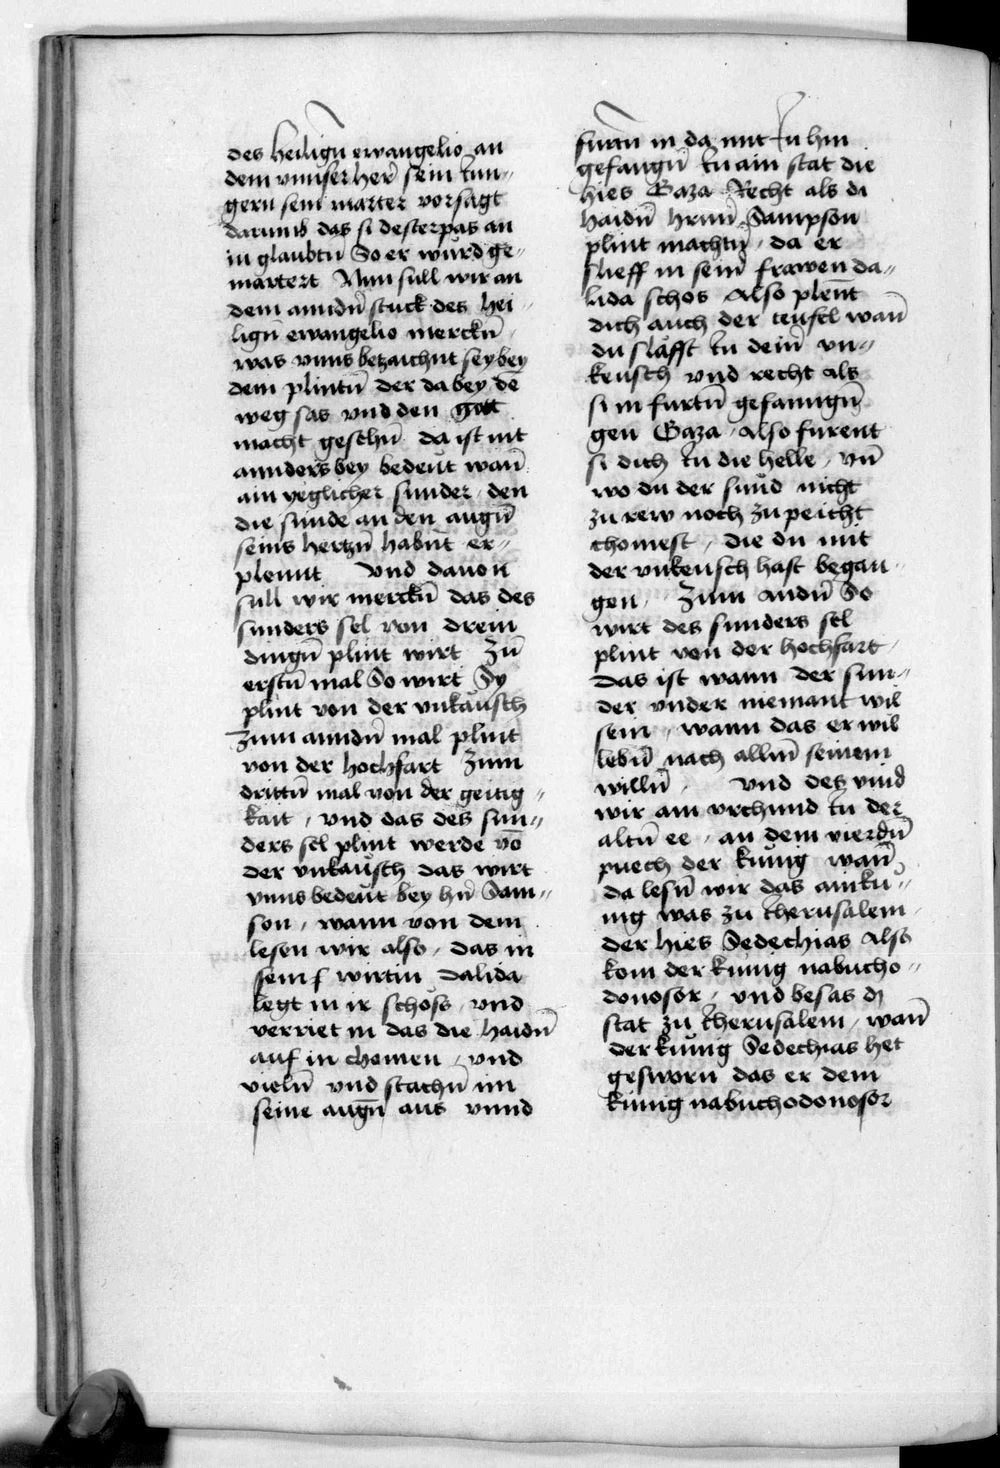 des heiligñ ewangelio an
dem vnnser her̄ sein Jun¬
gern sein marter vorsagt
darumb das si desterpas an
in glaubtñ So er wurd ge¬
martert Nun sull wir an
dem anndñ stuck des hei¬
ligñ ewangelio merckñ
was vnns betzaichnt sey bey
dem plintñ der da bey dē
weg sas vnd den gott
macht gesehñ da ist nit
annders bey bedeut wañ
ain yeglicher sunder den
die sunde an den augñ
seins hertzñ habnt er¬
plennt Vnd dauon
sull wir merckñ das des
sunders sel von drein
dingñ plint wirt Zū
erstñ mal So wirt Sy
plint von der vnkäusch
Zum anndñ mal plint
von der hochfart Zum
drittñ mal von der geitig¬
kait , vnd das des sun¬
ders sel plint werde vō
der vnkäusch das wirt
vnns bedeut bey hñ Sam¬
son , wann von dem
lesen wir also , das in
sein wirtin dalida
legt in ir schoss , vnd
verriet in das die haidñ
auf in chemen , vnd
vielñ vnd stachñ im
seine augñ aus vnnd
furtñ in da mit Jn hin
gefangñ Jn ain stat die
hies Gaza Recht als di
haidñ hrnn Sampson
plint machtñ , da er
slieff in seinr̄ frawen da¬
lida schos Also plent
dich auch der teufel wañ
du slafft Jn deinr̄ vn¬
keusch vnd recht als
si in furtñ gefanngñ
gen Gaza , also furent
si dich Jn die helle , vñ
wo du der sund nicht
zu rew noch zu peicht
chomest , die du mit
der vnkeusch hast began¬
gen , Zum andñ So
wirt des sunders sel
plint von der hochfart ,
das ist wann der sun¬
der vnder niemant wil
sein , wann das er wil
lebñ nach allm̄ seinem
willñ , Vnd des vind
wir ain vrchund Jn der
altñ ee , an dem vierdñ
puech der kunig wañ
da lesñ wir das ain ku¬
nig was zu Jherusalem ,
der hies Sedechias also
kom der kunig nabucho¬
donosor , vnd besas di
stat zu Jherusalem , wañ
der kunig Sedechias het
gesworn das er dem
kunig nabuchodonosor